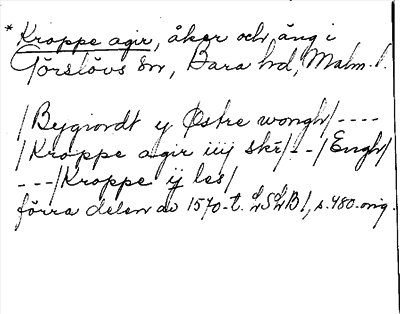 *Kroppe agir, åker och äng i
Görslövs sn, Bara hd, Malm. l.
/Bygiordt y Østre wongh/----
/Kroppe agir iiij ske/--/Engh/
---/Kroppe ij les/
förra delen av 1570-t. LSLB 1, s. 480. orig.